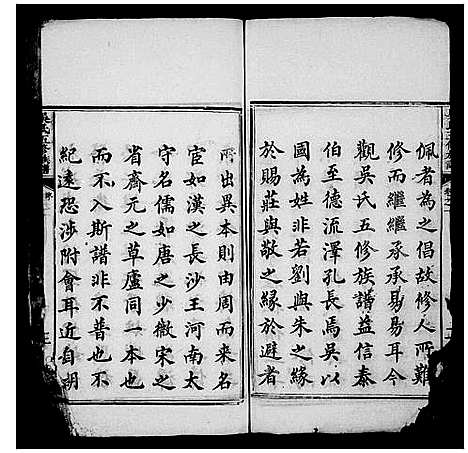 佩者為之倡故修人所難
修而繼繼承承易易耳今
觀吳氏五修族譜益信泰
伯至德流澤孔長焉吳以
國為姓非若劉與朱之緣
於賜莊與敬之緣於避者
所出異本則由周而來名
宦如漢之長沙王河南太
守名儒如唐之少微宋之
省齋元之草廬同一本也
而不入斯譜非不普也不
紀遠恐涉附會耳近自明
吳氏五修族譜